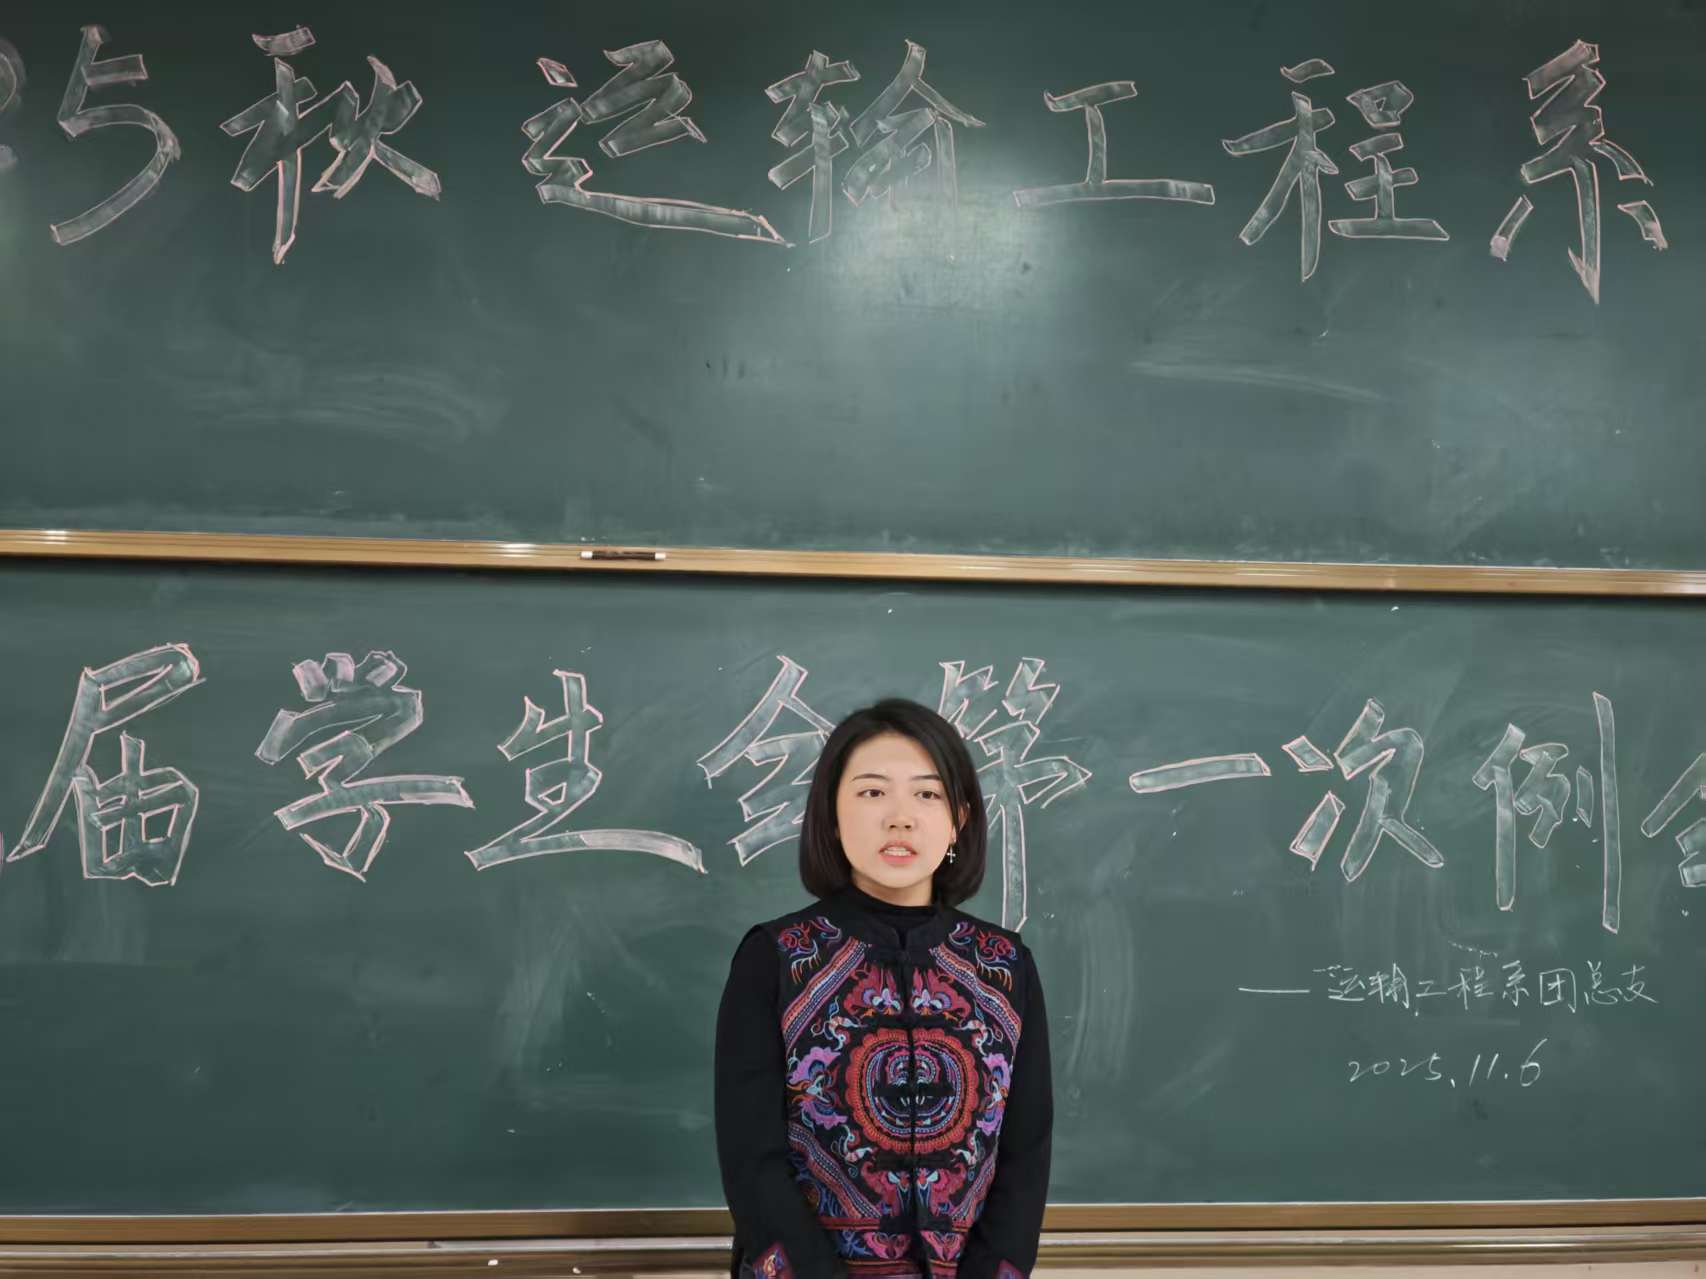 25秋运输工程系
届学生会第一次例会
——运输工程系团总支
2025.11.6